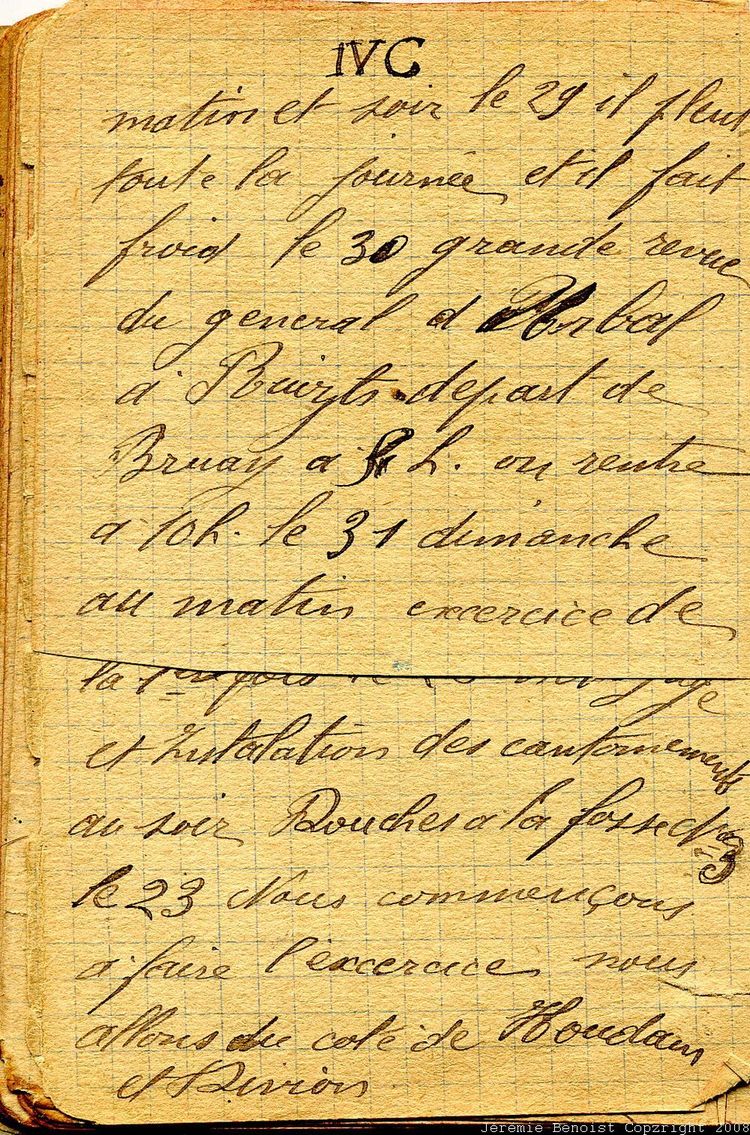 IVC
matin et soir le 29 il pleut
toute la journée et il fait
froid le 30 grande revue
du general d Urbal
a Ruizts depart de
Bruay a h. on rentre
a 10h. le 31 dimanche
au matin excercice de
la 1ere fois le
et Instalation des cantonements
au soir Douches a la fosse no 3
le 23 Nous commençons
a faire l'excercice nous
allons du coté de Houdain
et Divion
Jeremie Benoist Copzright 2008